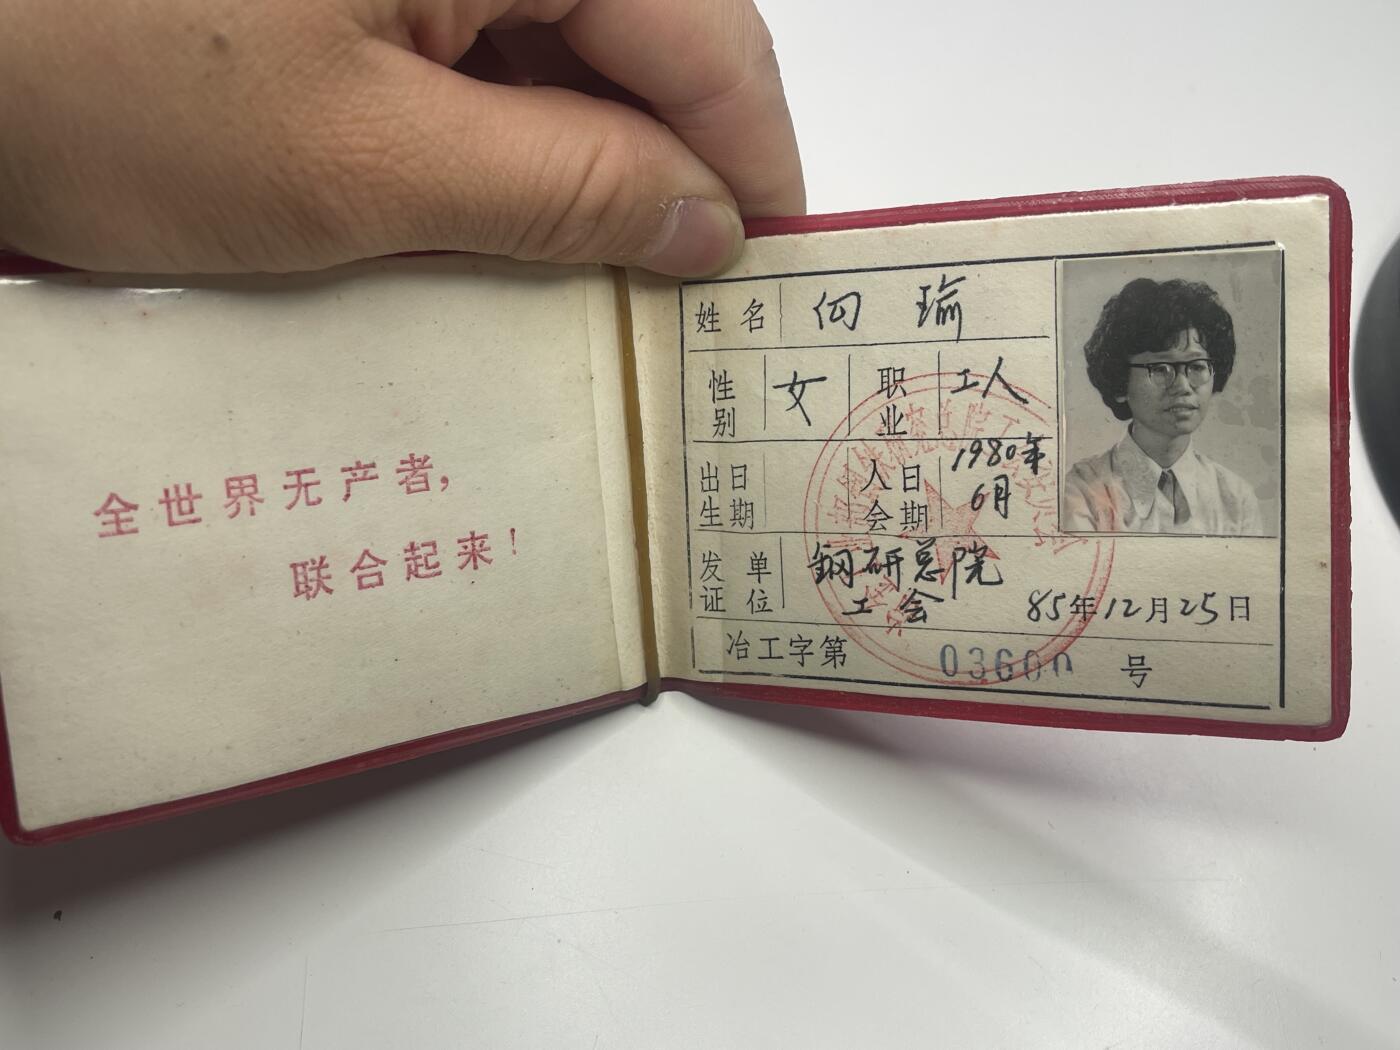 全世界无产者，
联合起来！
姓名 向 瑜
性别 女 职业 工人
出生日期 入会日期 1980年6月
发证单位 钢研总院工会 85年12月25日
冶工字第 03600 号